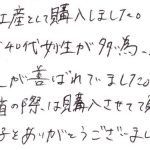 土産として購入しました。
40代女性が多い為、
が喜ばれていました。
の際は購入させて
とありがとうございまし